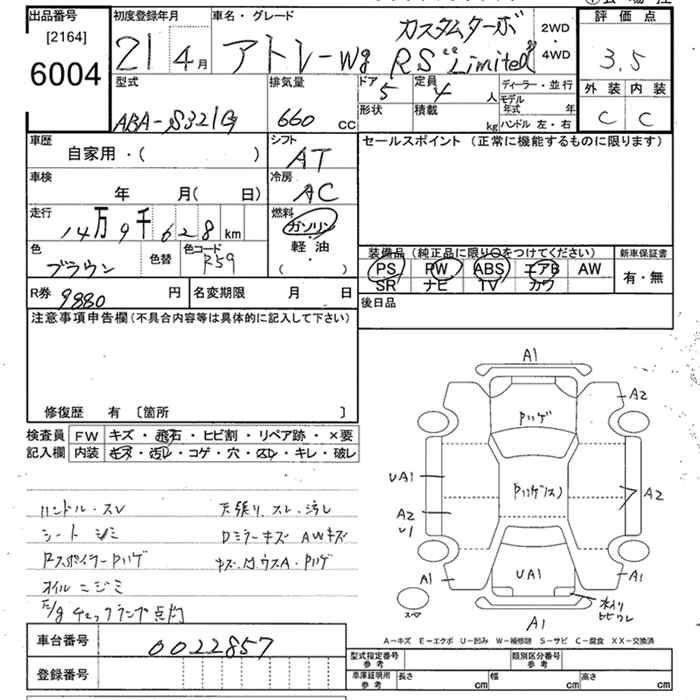 出品番号 初度登録年月 車名・グレード 評価点
[2164] カスタムターボ 2WD
6004 21 4月 アトレーWg RS "Limited" 4WD 3.5
型式 排気量 ドア 5 定員 4人 ディーラー・並行 外装 内装
ABA-S321G 660 CC 形状 積載 kg モデル年式 年 C C
ハンドル 左・右
車歴 シフト セールスポイント (正常に機能するものに限ります)
自家用・( ) AT
車検 冷房
年 月( 日) AC
走行 燃料
14万9千628km ガソリン
色 色替 色コード 軽・油 装備品(純正品に限り〇をつけてください) 新車保証書
ブラウン R59 ( ・ ) PS PW ABS エアB AW 有・無
SR ナビ TV カワ
R券 9880円 名変期限 月 日 後日品
注意事項申告欄(不具合内容等は具体的に記入して下さい)
修復歴 有 〔箇所 〕
検査員 FW キズ・飛石・ヒビ割・リペア跡・×要
記入欄 内装 キズ・汚レ・コゲ・穴・スレ・キレ・破レ
A1
A2
Pハゲ
UA1
A2
A2
A1
UA1
A1
A1
ヒビワレ
ハンドル・スレ 天張り、スレ・汚レ
シート シミ DミラーキズAWキズ
RスポイラーPハゲ
オイルニジミ
E/gチェックランプ点灯
A-キズ E-エクボ U-凹み W-補修跡 S-サビ C-腐食 XX-交換済
車台番号 0022857
登録番号
型式指定番号 参考 類別区分番号 参考
車庫証明用 参考 長さ cm 幅 cm 高さ cm